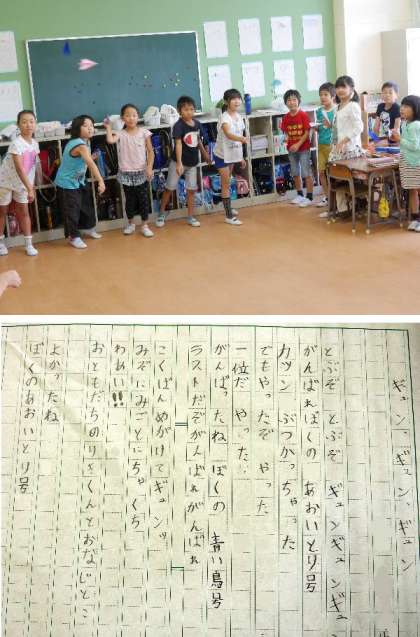 ギュン ギュン ギュン
とぶぞ とぶぞ ギュンギュンギュ
がんばれぼくの あおいとり号
カツン ぶつかっちゃった
でもやったぞ やった
一位だ やった
がんばったね ぼくの 青い鳥号
ラストだぞがんばれがんばれ
こくばんめがけてギュンッ
みぞにみごとにちゃくち
わぁい!!
おともだちのりさくんとおなじとこ
よかったね
ぼくのあおいとり号